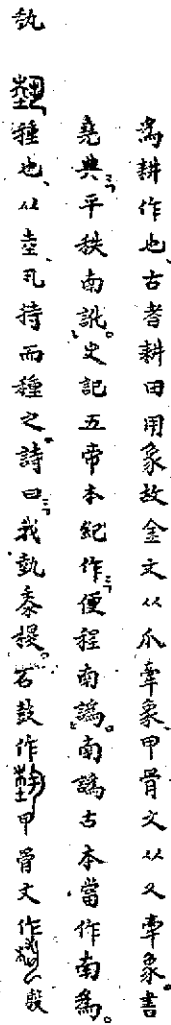 為耕作也、古者耕田用象故金文从爪牽象、甲骨文从又牽象、書
堯典、平秩南訛。史記五帝本紀作、便程南譌。南譌古本當作南為。
埶
種也、从坴丮持而種之。詩曰、我埶黍稷。石鼓作甲骨文作殷